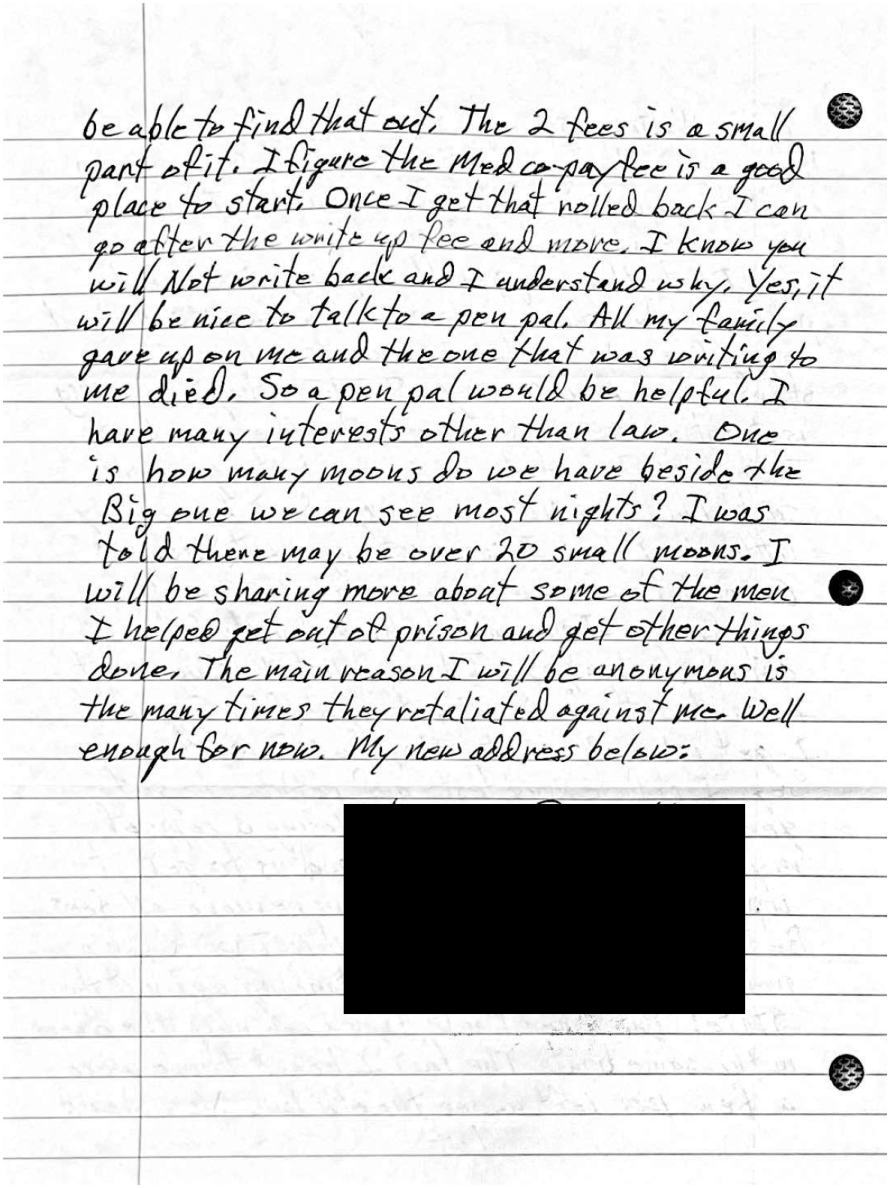 be able to find that out. The 2 fees is a small
part of it. I figure the Med co-pay fee is a good
place to start. Once I get that rolled back I can
go after the write up fee and more. I know you
will Not write back and I understand why. Yes, it
will be nice to talk to a pen pal. All my family
gave up on me and the one that was writing to
me died. So a pen pal would be helpful. I
have many interests other than law. One
is how many moons do we have beside the
Big one we can see most nights? I was
told there may be over 20 small moons. I
will be sharing more about some of the men
I helped get out of prison and get other things
done. The main reason I will be anonymous is
the many times they retaliated against me. Well
enough for now. My new address below: